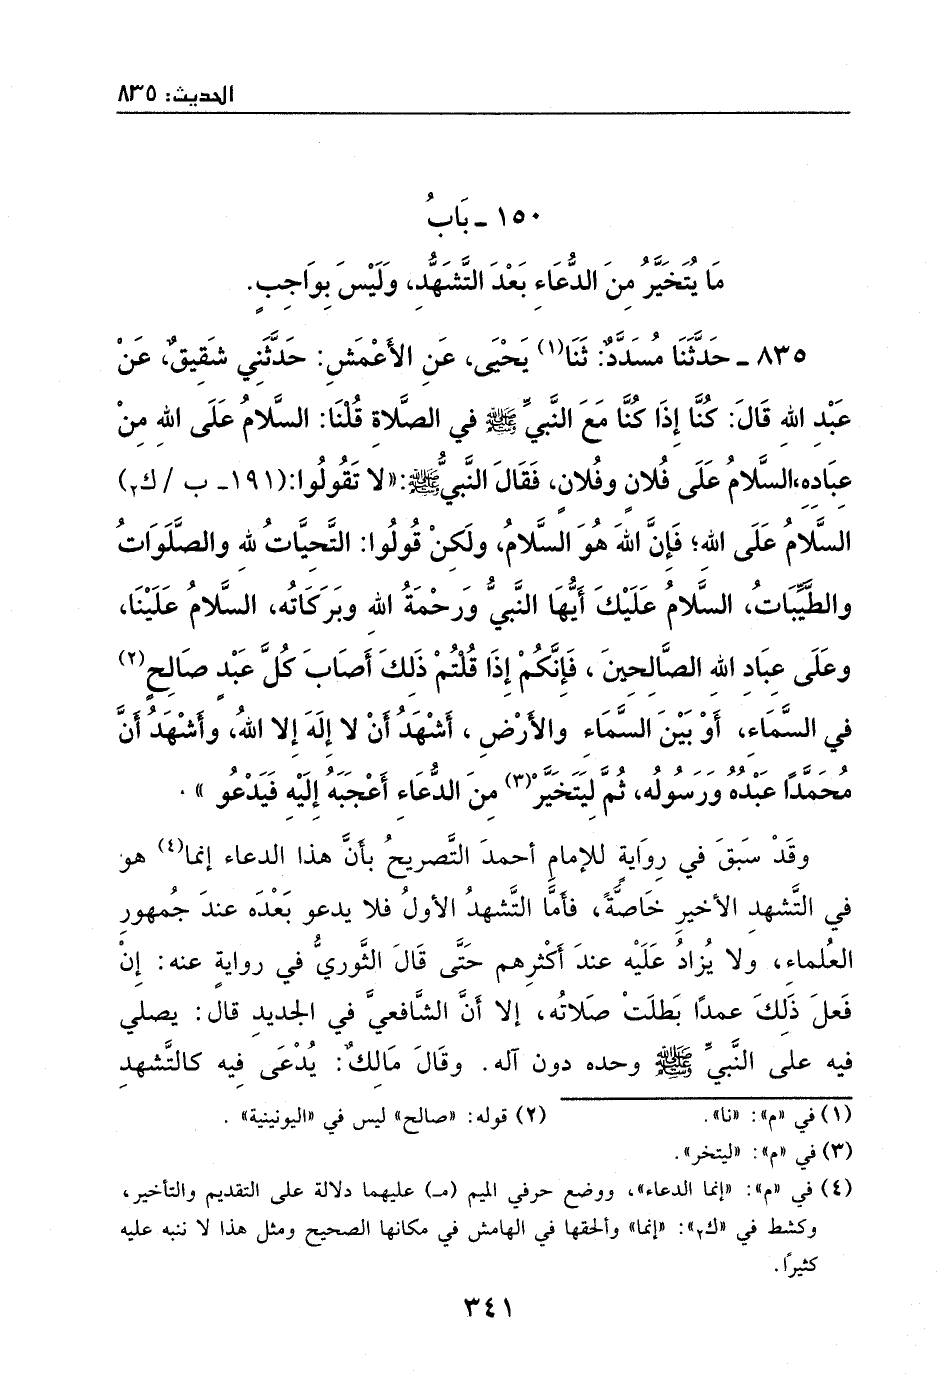 الحديث: ٨٣٥
١٥٠ ـ بَابُ
مَا يُتَخَيَّرُ مِنَ الدُّعَاءِ بَعْدَ التَّشَهُّدِ، وَلَيْسَ بِوَاجِبٍ.
٨٣٥ ـ حَدَّثَنَا مُسَدَّدٌ: ثَنَا(١) يَحْيَى، عَنِ الأَعْمَشِ: حَدَّثَنِي شَقِيقٌ، عَنْ
عَبْدِ اللهِ قَالَ: كُنَّا إِذَا كُنَّا مَعَ النَّبِيِّ ﷺ فِي الصَّلاةِ قُلْنَا: السَّلامُ عَلَى اللهِ مِنْ
عِبَادِهِ،السَّلامُ عَلَى فُلانٍ وفُلانٍ، فَقَالَ النَّبِيُّ ﷺ:«لا تَقُولُوا:(١٩١ـ ب / ك٢)
السَّلامُ عَلَى اللهِ؛ فَإِنَّ اللهَ هُوَ السَّلامُ، ولَكِنْ قُولُوا: التَّحِيَّاتُ للهِ والصَّلَوَاتُ
والطَّيِّبَاتُ، السَّلامُ عَلَيْكَ أَيُّهَا النَّبِيُّ وَرَحْمَةُ اللهِ وبَرَكَاتُه، السَّلامُ عَلَيْنَا،
وعَلَى عِبَادِ اللهِ الصَّالِحِينَ ، فَإِنَّكُمْ إِذَا قُلْتُمْ ذَلِكَ أَصَابَ كُلَّ عَبْدٍ صَالِحٍ(٢)
فِي السَّمَاءِ، أَوْ بَيْنَ السَّمَاءِ والأَرْضِ ، أَشْهَدُ أَنْ لا إِلَهَ إِلا اللهُ، وأَشْهَدُ أَنَّ
مُحَمَّدًا عَبْدُهُ وَرَسُولُه، ثُمَّ لِيَتَخَيَّرْ(٣) مِنَ الدُّعَاءِ أَعْجَبَهُ إِلَيْهِ فَيَدْعُو » .
وقَدْ سَبَقَ في رِوَايةٍ للإمامِ أحمدَ التَّصريحُ بأنَّ هذا الدعاء إنما(٤) هو
في التَّشهدِ الأخيرِ خَاصَّةً، فأمَّا التَّشهدُ الأولُ فلا يدعو بَعْدَه عندَ جُمهورِ
العُلماءِ، ولا يُزادُ عَلَيْه عندَ أكْثرِهم حَتَّى قَالَ الثَّوريُّ في روايةٍ عنه: إنْ
فَعلَ ذَلكَ عمدًا بَطلَتْ صَلاتُه، إلا أنَّ الشَّافعيَّ في الجديدِ قال: يصلي
فيه على النَّبيِّ ﷺ وحده دون آله. وقَالَ مَالكٌ: يُدْعَى فيه كالتَّشهدِ
(١) في «م»: «نا».
(٢) قوله: «صالح» ليس في «اليونينية» .
(٣) في «م»: «ليتخر».
(٤) في «م»: «إنما الدعاء»، ووضع حرفي الميم (مـ) عليهما دلالة على التقديم والتأخير،
وكشط في «ك٢»: «إنما» وألحقها في الهامش في مكانها الصحيح ومثل هذا لا ننبه عليه
كثيرًا.
٣٤١